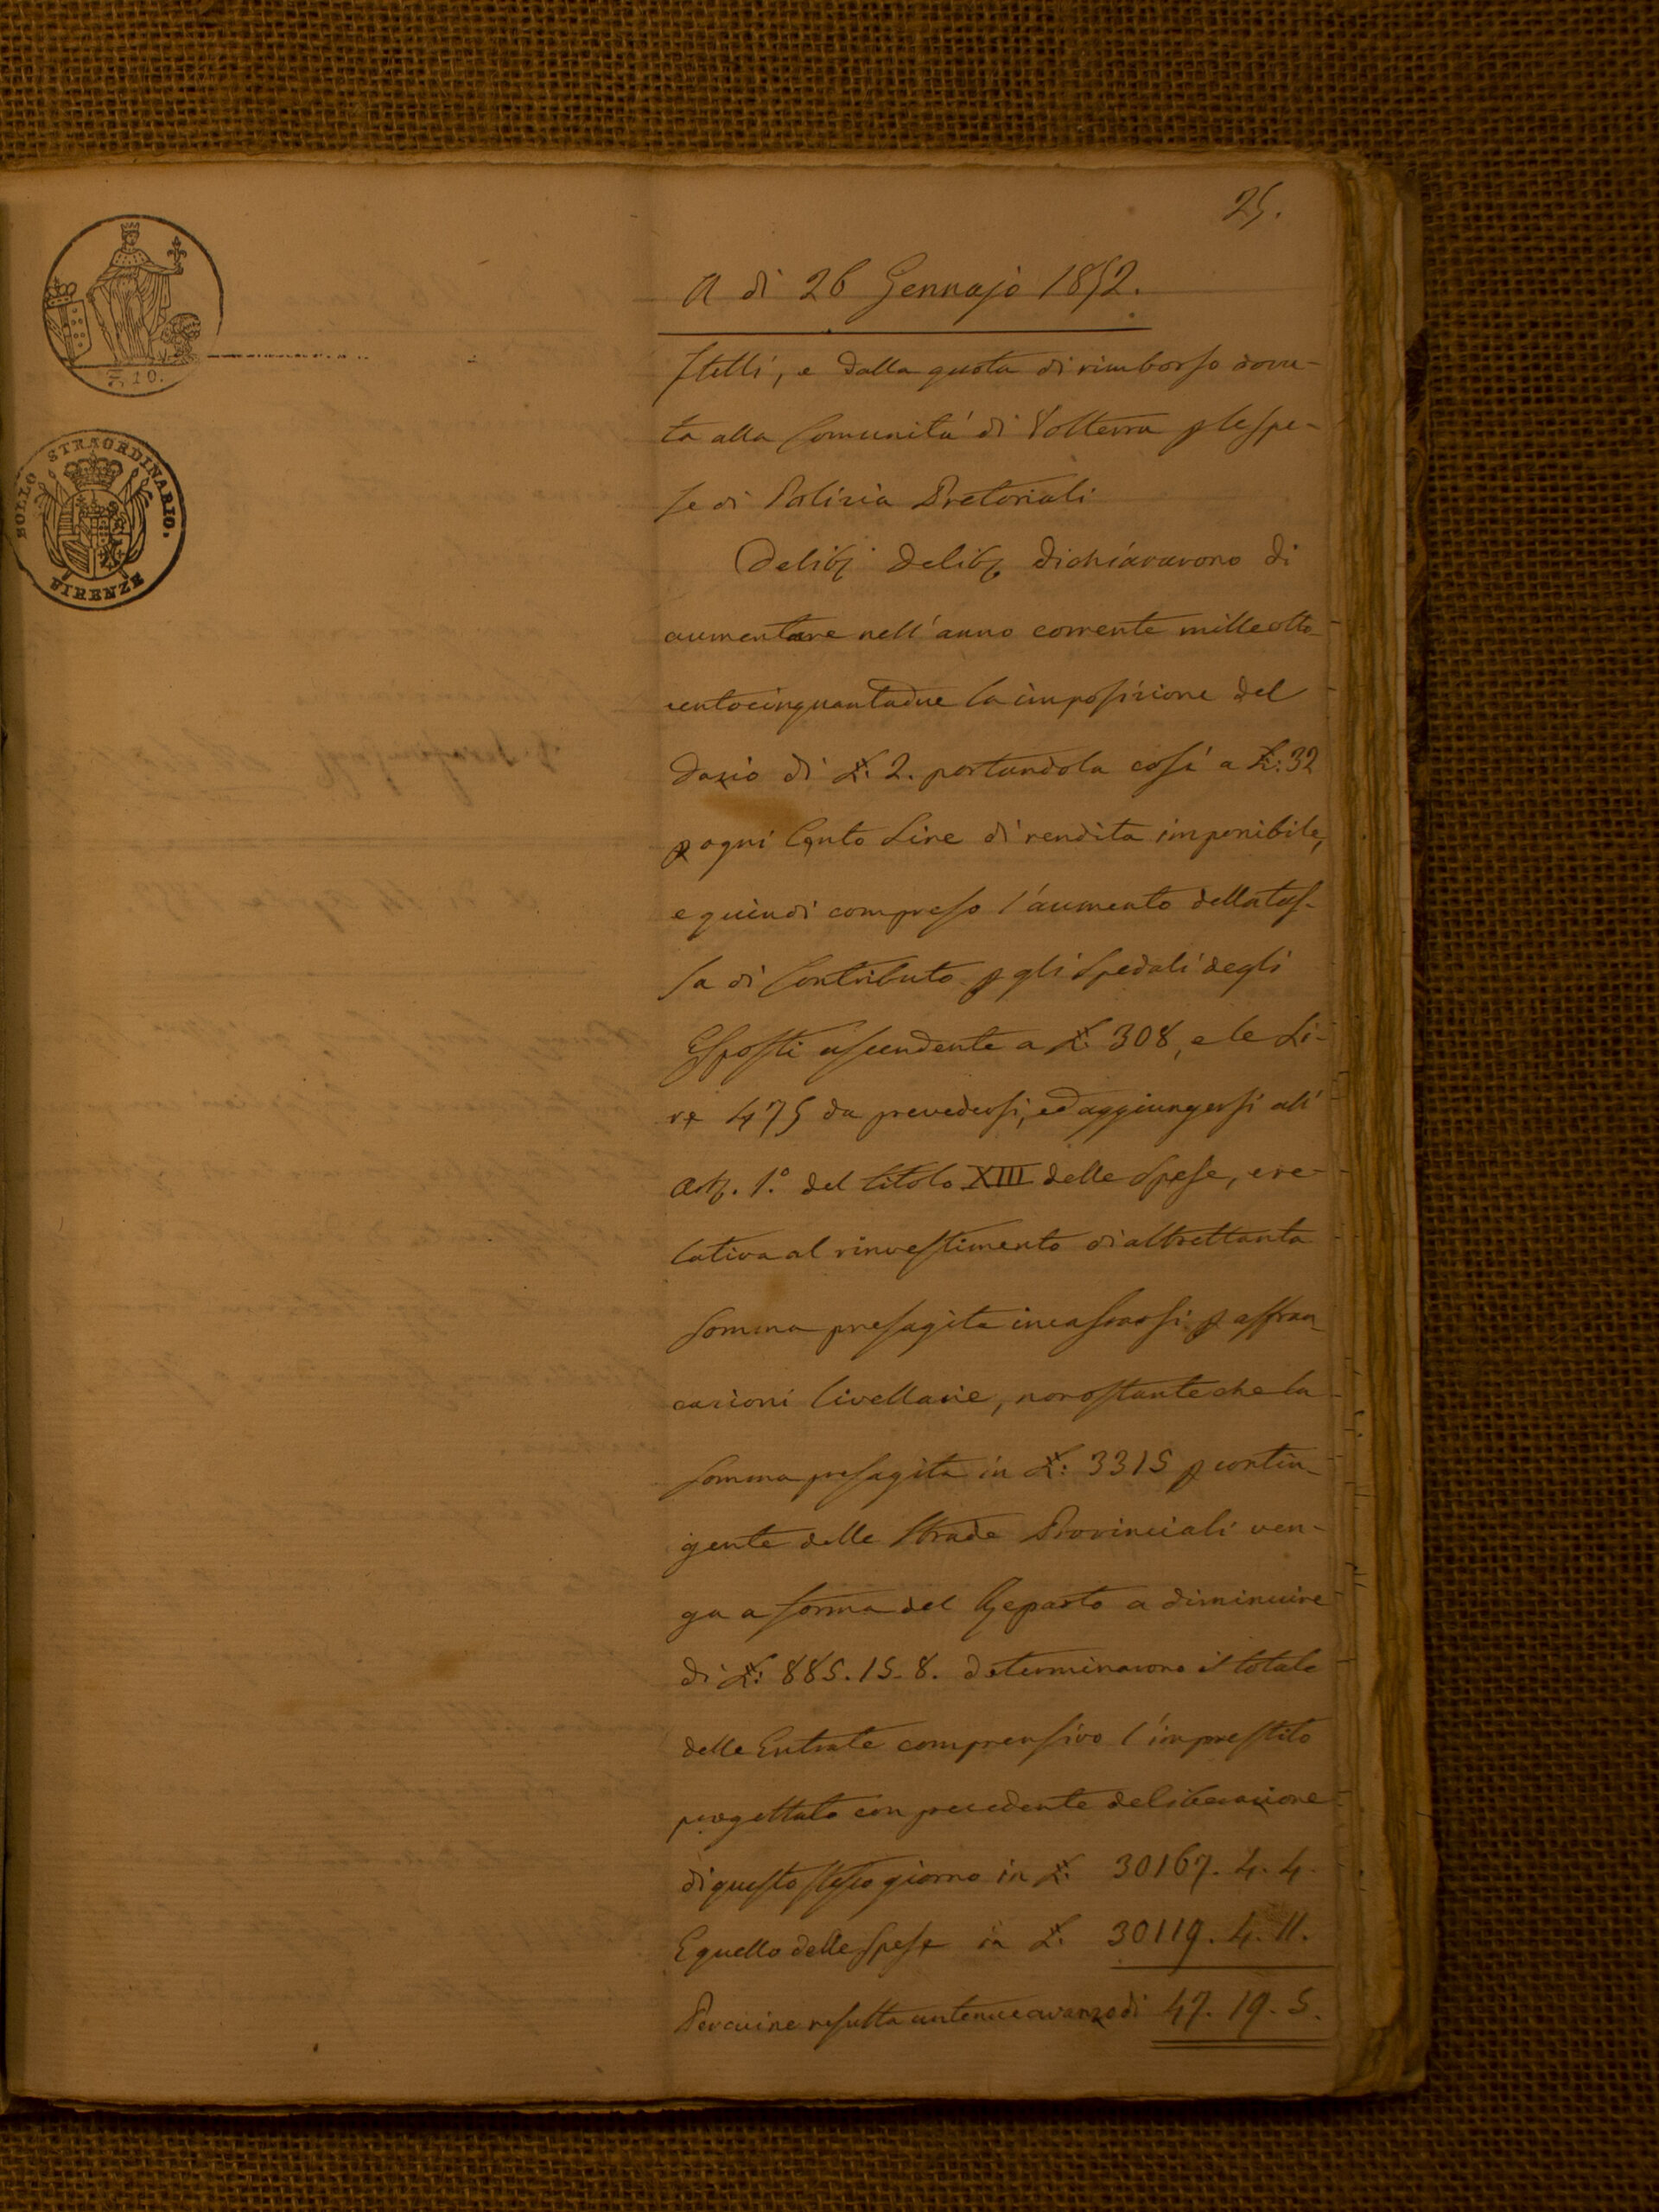 25.
A dì 26 Gennajo 1852.
10.
BOLLO STRAORDINARIO.
FIRENZE
stelli, e dalla quota di rimborso dovu-
ta alla Comunità di Volterra p le spe-
se di Polizia Pretoriali
Delib Delib dichiararono di
aumentare nell'anno corrente milleotto
centocinquantadue la imposizione del
Dazio di £: 2. portandola così a £: 32
p ogni Cento Lire di rendita imponibile,
e quindi compreso l'aumento della tas-
sa di Contributo p gli Spedali degli
Esposti ascendente a £: 308, e le Li-
re 475 da prevedersi, ed aggiungersi all'
Art. 1.° del titolo XIII delle Spese, e re-
lativa al rinvestimento di altrettanta
somma presagita incassarsi p affran
cazioni livellarie, nonostante che la
somma presagita in £: 3315 p contin-
gente delle Strade Provinciali ven-
ga a forma del Reparto a diminuire
di £: 885.15.8. determinarono il totale
delle Entrate comprensivo l'imprestito
progettato con precedente deliberazione
di questo stesso giorno in £: 30167.4.4.
E quello delle Spese in £: 30119.4.11.
Per cui ne resulta un tenue avanzo di 47.19.5.